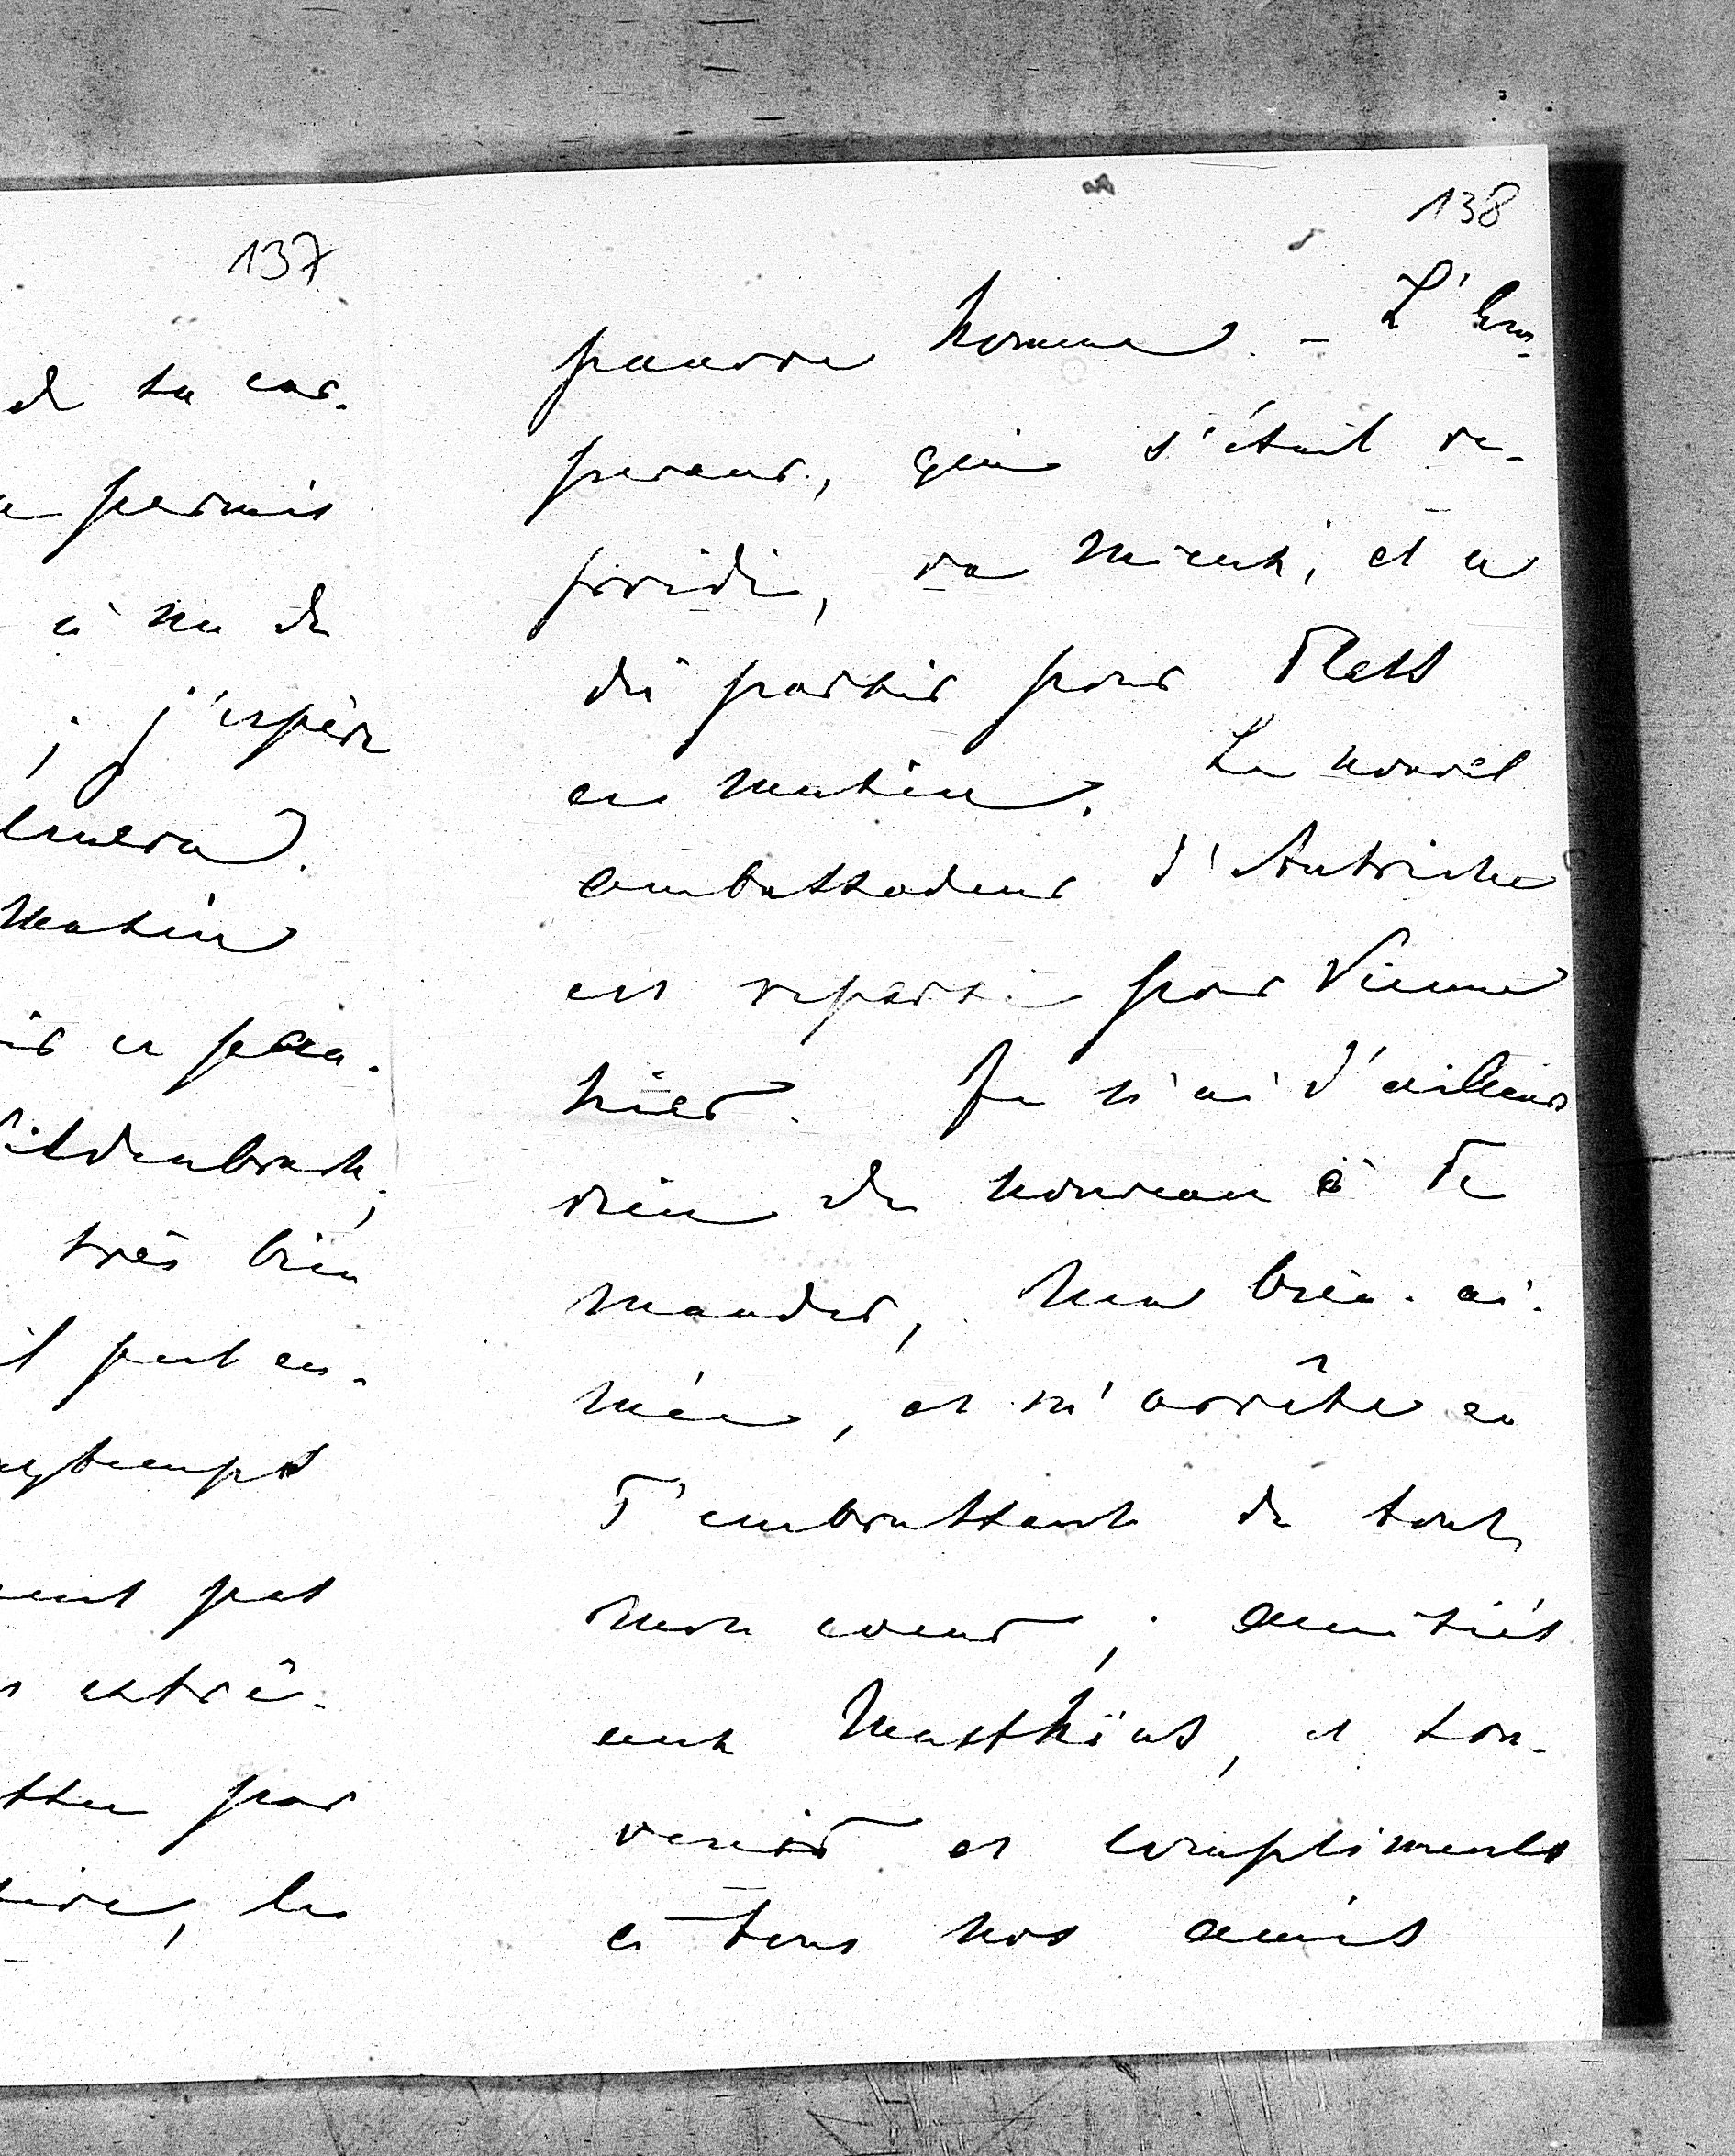 137
de sa cor-
permis
à me de
; j'espère
matin
très bien
il peut en-
pas
extrê-
par
les
138
pauvre homme. – L'Em-
pereur, qui s'était re-
froidi, va mieux, et a
dû partir pour Pless
ce matin. Le nouvel
ambassadeur d'Autriche
est reparti pour Vienne
hier. Je n'ai d'ailleurs
rien de nouveau à Te
mander, ma bien-ai-
mée, et m'arrête en
T'embrassant de tout
mon coeur; amitiés
aux Matthias, et sou-
venir et compliments
à tous nos amis